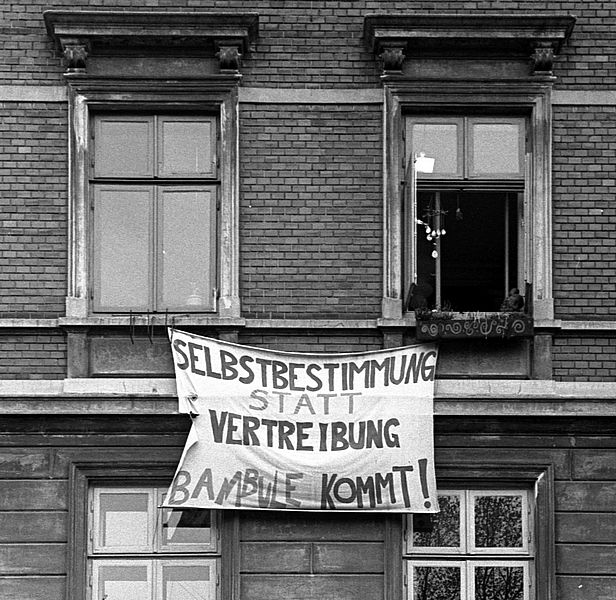 SELBSTBESTIMMUNG
STATT
VERTREIBUNG
BAMBULE KOMMT!